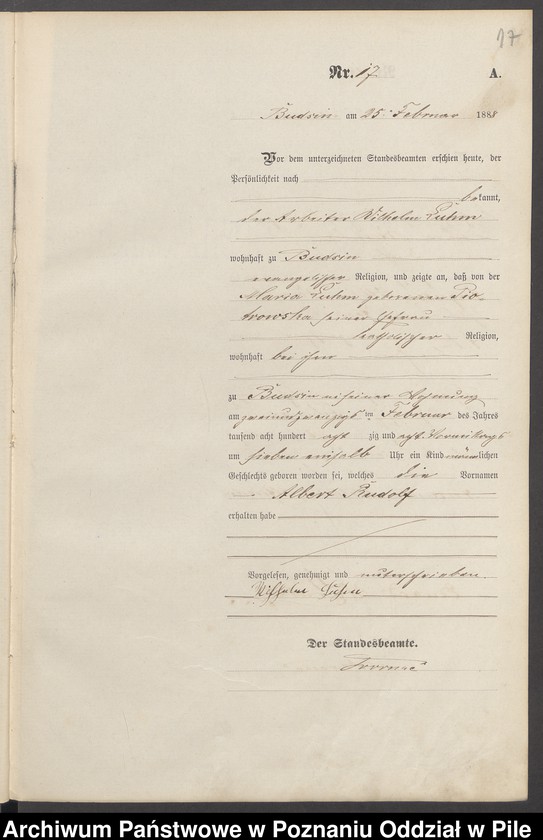 17
Nr. 17
A.
Budsin am 25. Februar 1888
Vor dem unterzeichneten Standesbeamten erschien heute, der
Persönlichkeit nach
bekannt,
der Arbeiter Wilhelm Luhm
wohnhaft zu Budsin
evangelischer Religion, und zeigte an, daß von der
Maria Luhm geborenen Pio-
trowska seiner Ehefrau
katholischer Religion,
wohnhaft bei ihm
zu Budsin in seiner Wohnung
am zweiundzwanzigs ten Februar des Jahres
tausend acht hundert acht zig und acht Vormittags
um sieben einhalb Uhr ein Kind männlichen
Geschlechts geboren worden sei, welches die Vornamen
Albert Rudolf
erhalten habe
Vorgelesen, genehmigt und unterschrieben.
Wilhelm
Der Standesbeamte.
Archiwum Państwowe w Poznaniu Oddział w Pile